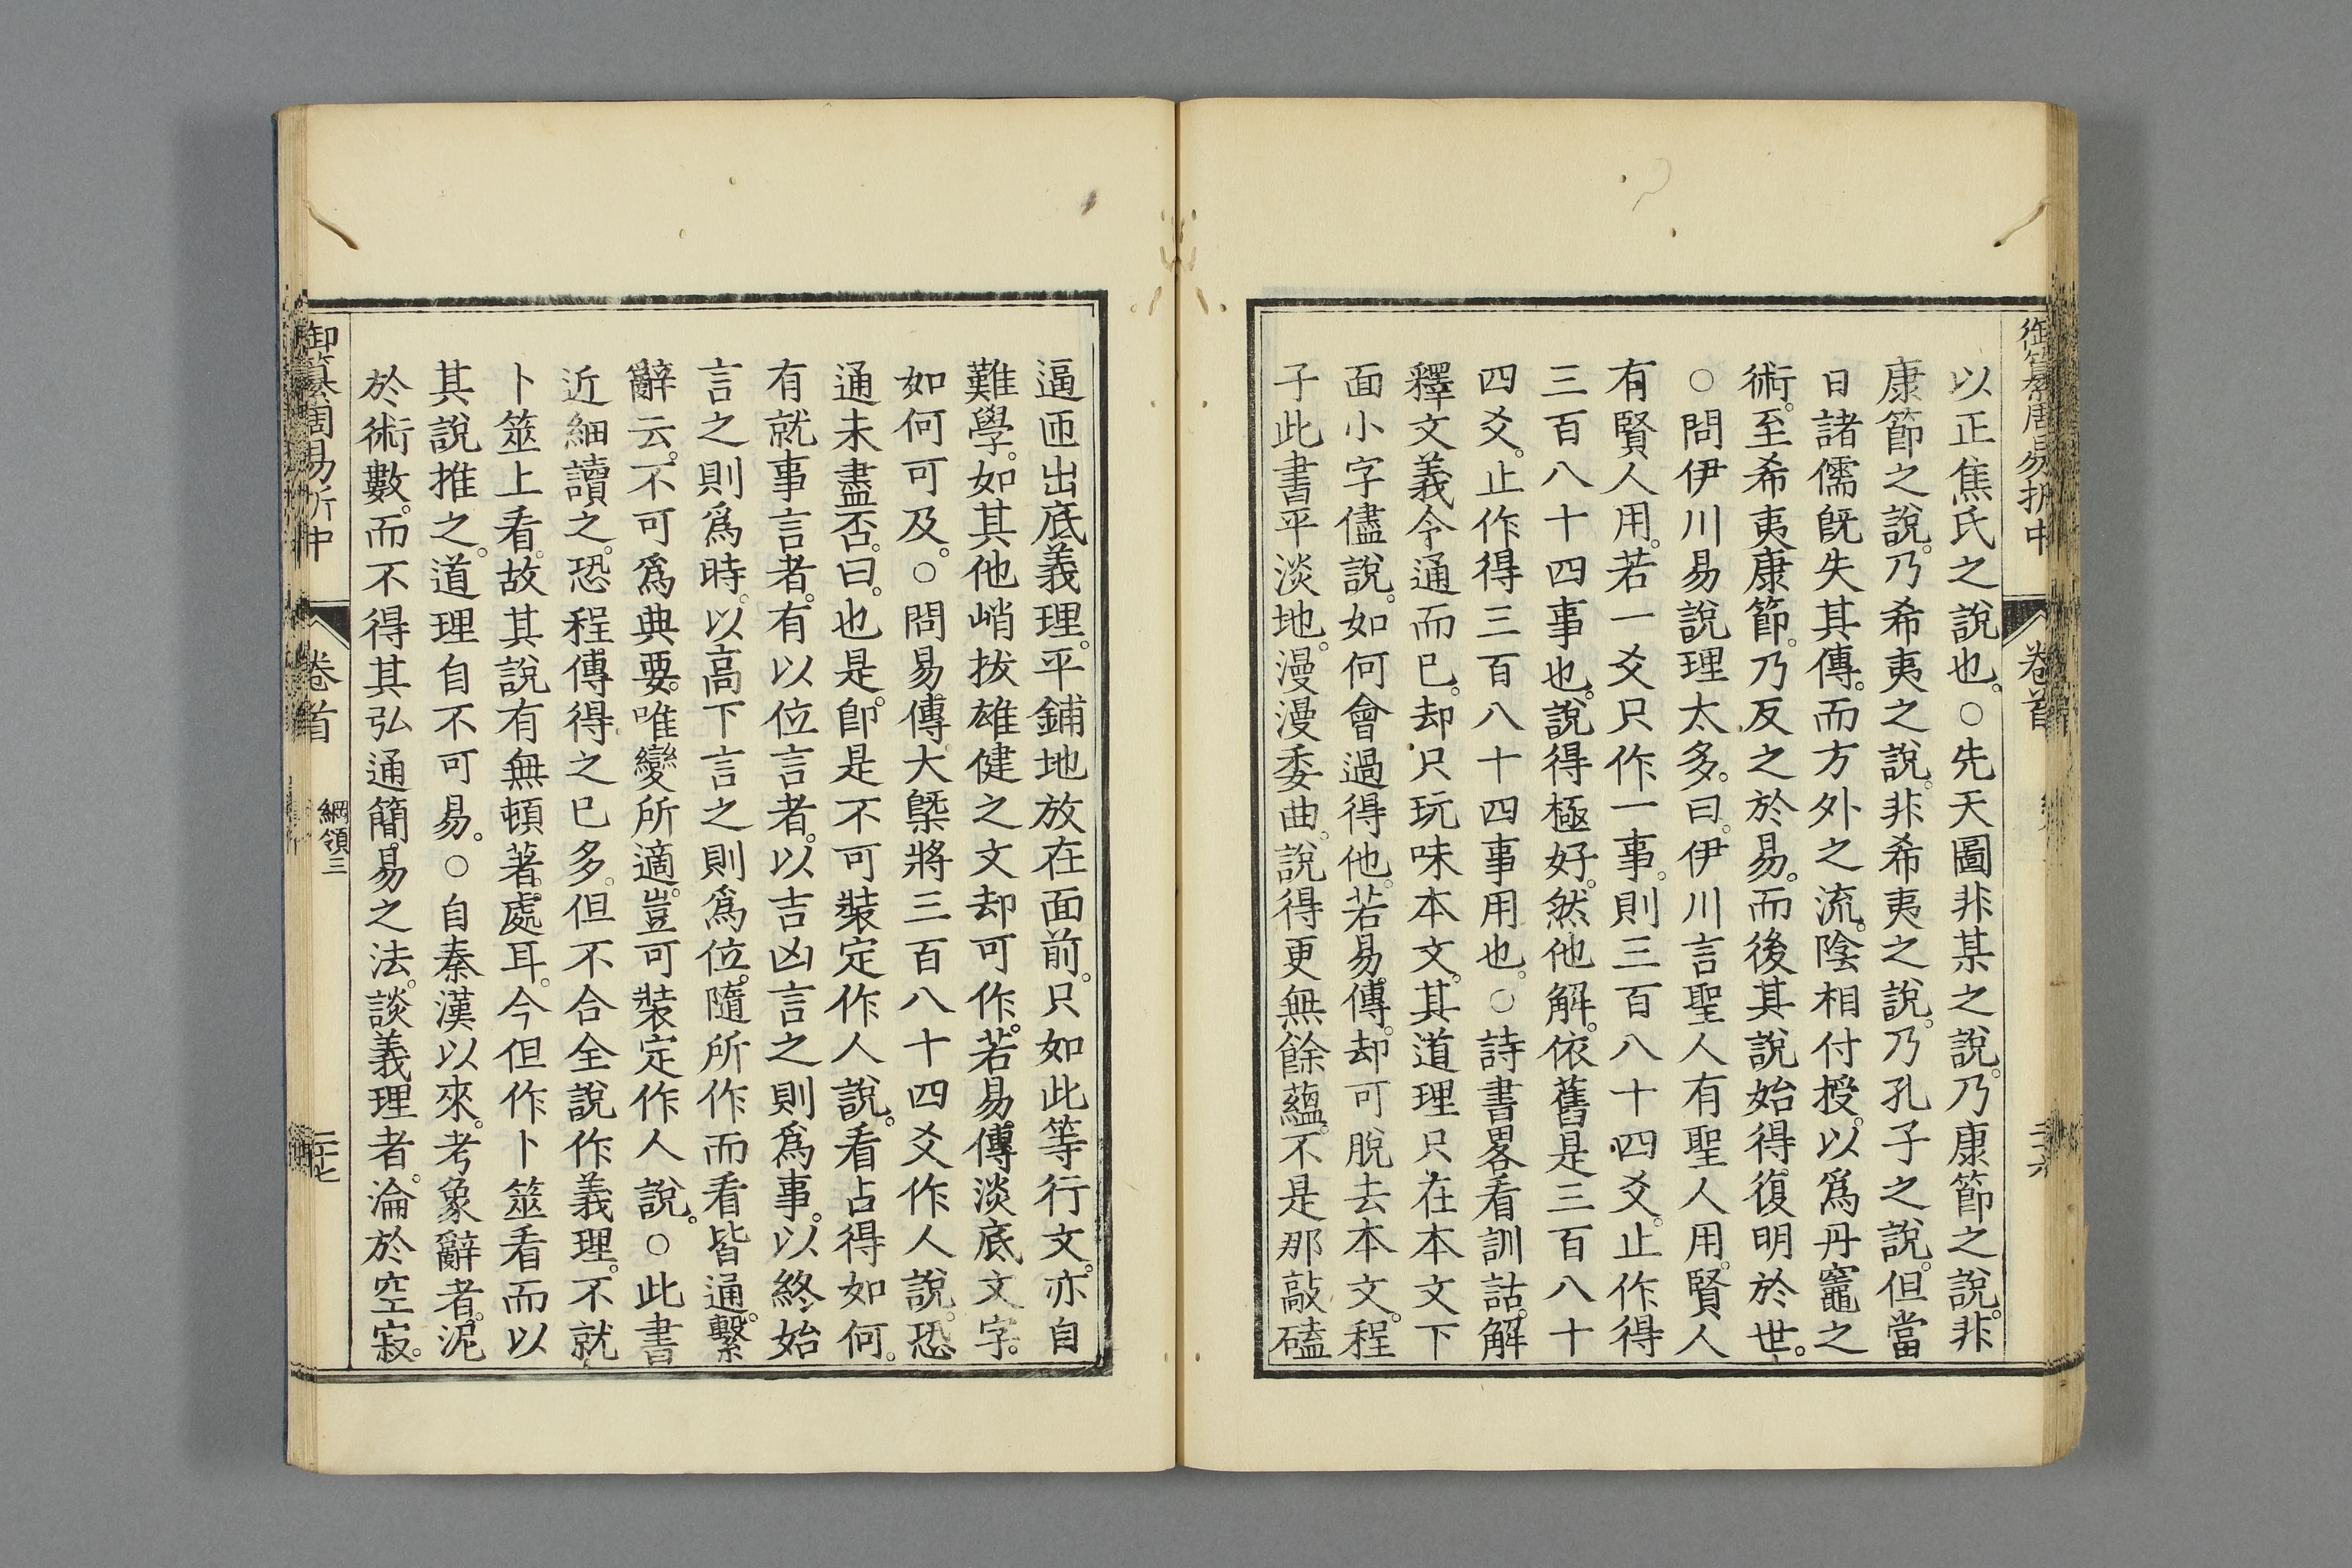 御纂周易折中 卷首
以正焦氏之說也。○先天圖非某之說。乃康節之說。非
康節之說。乃希夷之說。非希夷之說。乃孔子之說。但當
日諸儒旣失其傳。而方外之流。陰相付授。以爲丹竈之
術。至希夷康節。乃反之於易。而後其說始得復明於世。
○問伊川易說理太多。曰。伊川言聖人有聖人用。賢人
有賢人用。若一爻只作一事。則三百八十四爻。止作得
三百八十四事也。說得極好。然他解。依舊是三百八十
四爻。止作得三百八十四事用也。○詩書畧看訓詁。解
釋文義令通而已。却只玩味本文。其道理只在本文下
面小字儘說。如何會過得他。若易傳。却可脫去本文。程
子此書平淡地。漫漫委曲。說得更無餘蘊。不是那敲磕
逼匝出底義理。平鋪地放在面前。只如此等行文。亦自
難學。如其他峭拔雄健之文却可作。若易傳淡底文字。
如何可及。○問易傳大槩將三百八十四爻作人說。恐
通未盡否。曰。也是。卽是不可裝定作人說。看占得如何。
有就事言者。有以位言者。以吉凶言之則爲事。以終始
言之則爲時。以高下言之則爲位。隨所作而看皆通。繫
辭云。不可爲典要。唯變所適。豈可裝定作人說。○此書
近細讀之。恐程傳得之已多。但不合全說作義理。不就
卜筮上看。故其說有無頓著處耳。今但作卜筮看而以
其說推之。道理自不可易。○自秦漢以來。考象辭者。泥
於術數。而不得其弘通簡易之法。談義理者。淪於空寂。
御纂周易折中 卷首 綱領三 二十七